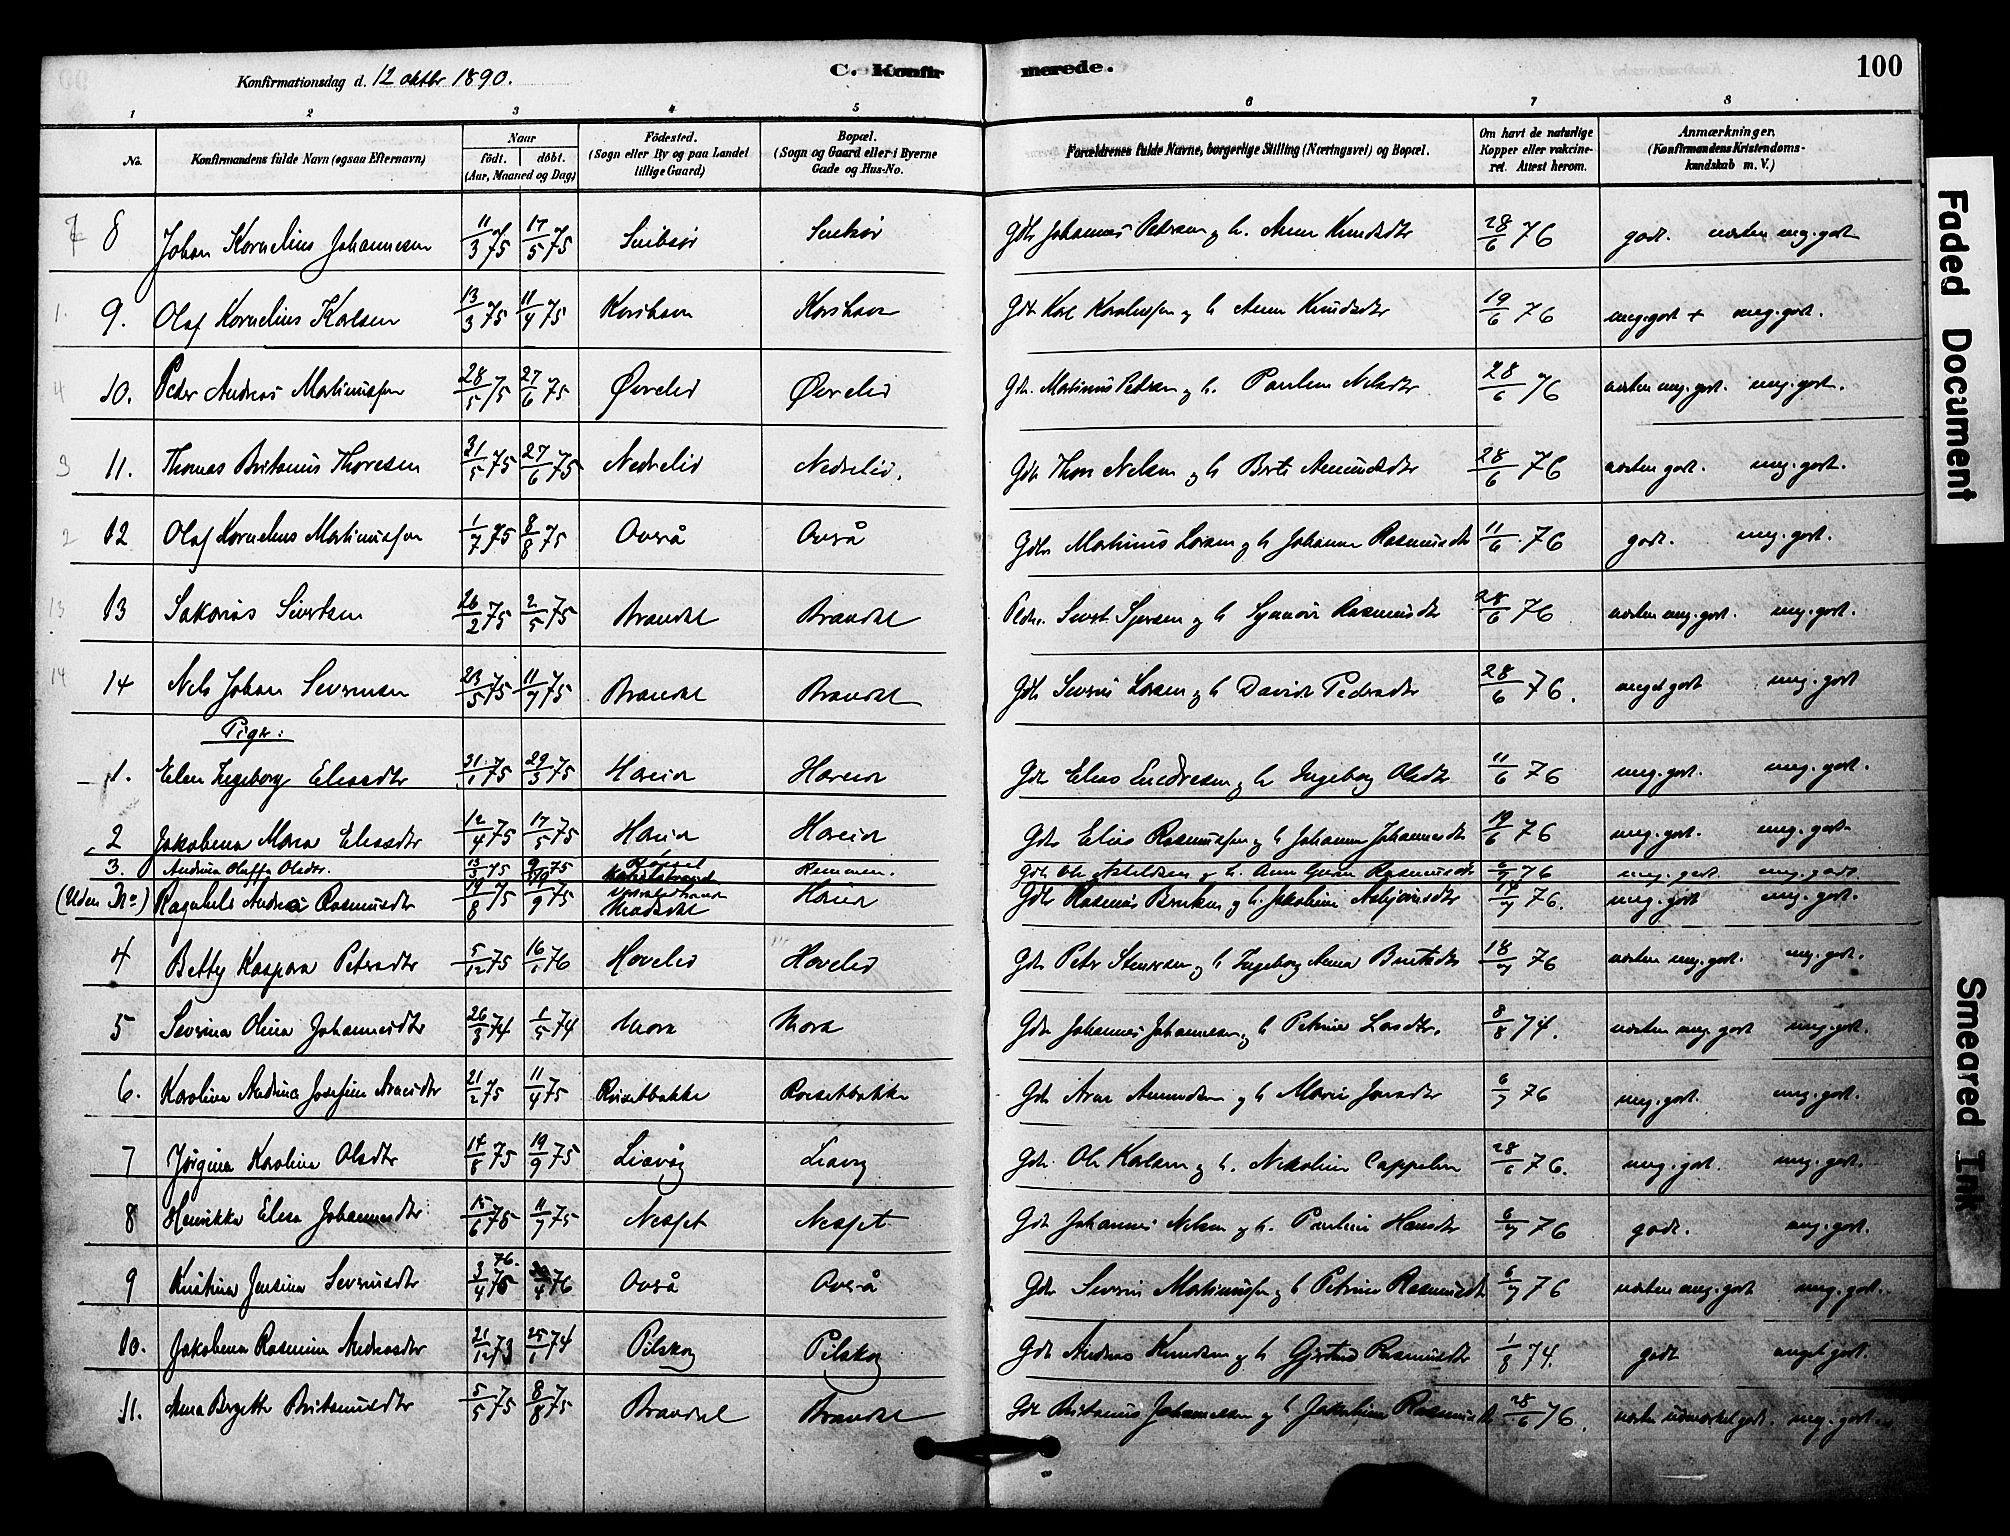 Konfirmationsdag d. 12 oktbr 1890. C. Konfirmerede. 100
1 2 3 4 5 6 7 8
No. Konfirmandens fulde Navn (ogsaa Efternavn) Naar født. døbt. (Aar, Maaned og Dag) Fødested. (Sogn eller By og paa Landet tillige Gaard) Bopæl. (Sogn og Gaard eller i Byerne Gade og Hus-No. Forældrenes fulde Navne, borgerlige Stilling (Næringsvei) og Bopæl. Om havt de naturlige Kopper eller vakcineret. Attest herom. Anmærkninger. (Konfirmandens Kristendomskundskab m. V.)
8 Johan Kornelius Johannesen 11/3 75 17/5 75 Gdbr Johannes Petersen og h. Anne Knudsdtr 28/6 76 godt. næsten meg. godt
1. 9. Olaf Kornelius Karlsen 13/3 75 11/4 75 Korshavn Korshavn Gdbr Karl og h Anne Knudsdtr 19/6 76 meg. godt + meg. godt.
4 10. Peder Andreas Martinussen 28/5 75 27/6 75 Øvrelid Øvrelid Gdbr. Martinus Petersen og h. Pauline Nelsdtr 28/6 76 næsten meg. godt. meg. godt.
3 11. Thomas Britanus Thoresen 31/5 75 27/6 75 Nedrelid Nedrelid. Gdbr Thore Nelsen og h Berte Amundsdtr 28/6 76 næsten godt. meg. godt.
2 12 Olaf Kornelius Martinussen 1/7 75 8/8 75 Overå Overå Gdbr Martinus Larsen og h Johanne Rasmusdtr 11/6 76 godt. meg. godt.
13 13 Sakarias Sivertsen 26/2 75 2/5 75 Brandal Brandal Sivert og h Synnøve Rasmusdtr 28/6 76 næsten meg. godt. meg. godt.
14 14 Nels Johan Severinsen 23/5 75 11/7 75 Brandal Brandal Gdbr Severin Larsen og h David Pedersdtr 28/6 76. meget godt meg. godt
Piger:
1. Elen Ingeborg Eliasdtr 31/1 75 29/3 75 Hareid Hareid Gdbr Elias Endresen og h Ingeborg Olsdtr 11/6 76 meg. godt. meg. godt.
2 Jakobena Maria Eliasdtr 12/4 75 17/5 75 Hareid Hareid Gdbr Elias Rasmussen og h Johanne Johannesdtr 19/6 76 meg. godt. meg. godt.
3. Andrea Oluffa Olsdtr. 13/3 75 75 Remmen. Gdbr Ole og h. Rasmusdtr 6/7 76 meg. godt meg. godt.
(Uden No) Ragnhild Andrea Rasmusdtr 19/8 75 19/9 75 Hareid Gdbr Rasmus og h. Jakobine Asbjørnsdtr 14/7 76. meg. godt meg. godt.
4 Betty Kaspara Petersdtr 5/12 75 16/1 76 Hovelid Hovelid Gdbr Peter Stensen og h Ingeborg Anna 18/7 76 næsten meg. godt. meg. godt.
5 Severina Olina Johannesdtr 26/3 74 1/5 74 Mork Mork Gdbr Johannes Johannesen og h Petrine Larsdtr. 8/8 74. næsten meg. godt meg. godt.
6. Karolina Andrina Josefine Aransdtr 21/2 75 11/4 75 Risetbakke Raasetbakke Gdbr Aran Amundsen og h Marie Jonsdtr 6/7 76 meg. godt. meg. godt.
7 Jørgina Karolina Olsdtr 14/8 75 19/9 75 Liavåg Liavåg Gdbr. Ole Karlsen og h. Nikoline Cappelen 28/6 76. meg. godt. meg. godt.
8 Henrikka Elesa Johannesdtr 15/6 75 11/7 75 Neset Neset Gdbr Johannes Nelsen og h. Pauline Hansdtr 6/7 76 godt. meg. godt.
9 Kristina Jensina Severinsdtr 3/4 75 76. 76 Overå Overå Gdbr Severin Martinussen og h Petrine Rasmusdtr 6/7 76 næsten meg. godt meg. godt.
10. Jakobena Rasmine Andreasdtr 21/12 73 25/1 74 Pilskog Pilskog Gdbr Andreas Knudsen og h Gjertrud Rasmusdtr 1/8 74. godt meget godt.
11. Anna Bergette Britanusdtr 5/5 75 8/8 75 Brandal Brandal Gdbr Britanus Johannesen og h Jakobine Rasmusdtr 28/6 76. næsten udmærket godt. meg. godt.
Faded Document
Smeared Ink